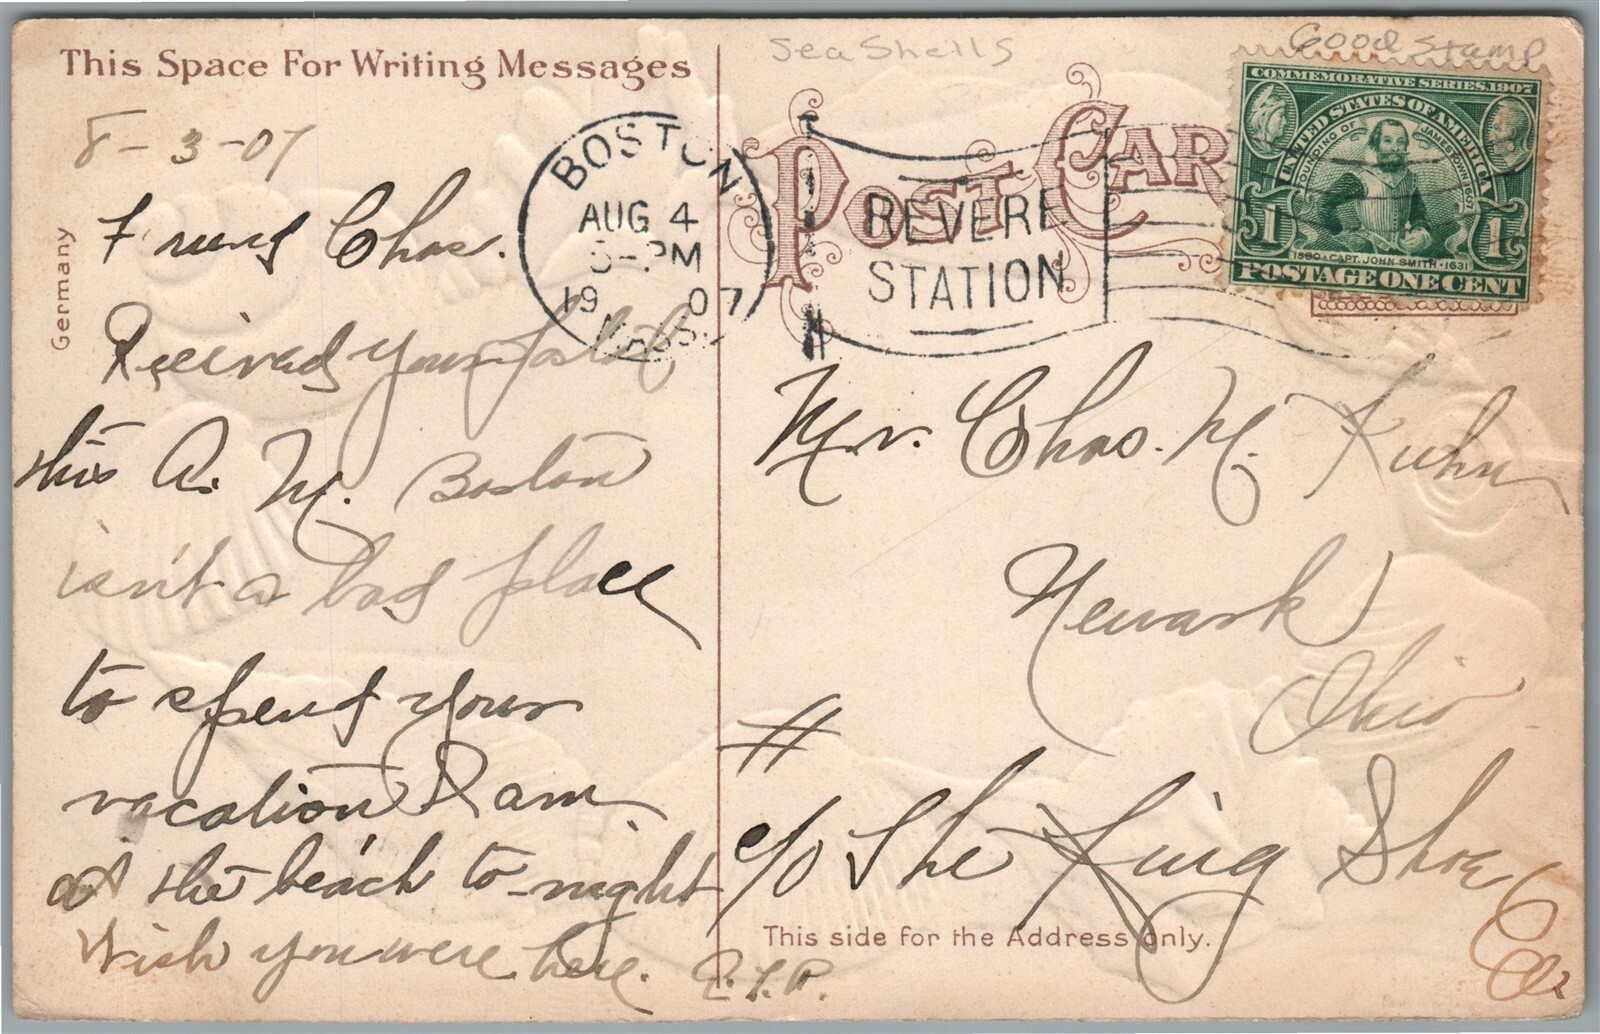 This Space For Writing Messages
8-3-07
Friend Chas.
Received your postal
this A. M. Boston
isn't a bad place
to spend your
vacation I am
at the beach to-night
Wish you were here.
Germany
Sea Shells
Good Stamp
POST CAR
BOSTON
AUG 4
PM
1907
MASS.
REVERE
STATION
COMMEMORATIVE SERIES 1907
UNITED STATES OF AMERICA
FOUNDING OF JAMESTOWN 1607
1 1
1580 · CAPT. JOHN SMITH · 1631
POSTAGE ONE CENT
Mr. Chas. M. Kuhn
Newark
Ohio
#
c/o The King Shoe
Co
This side for the Address only.